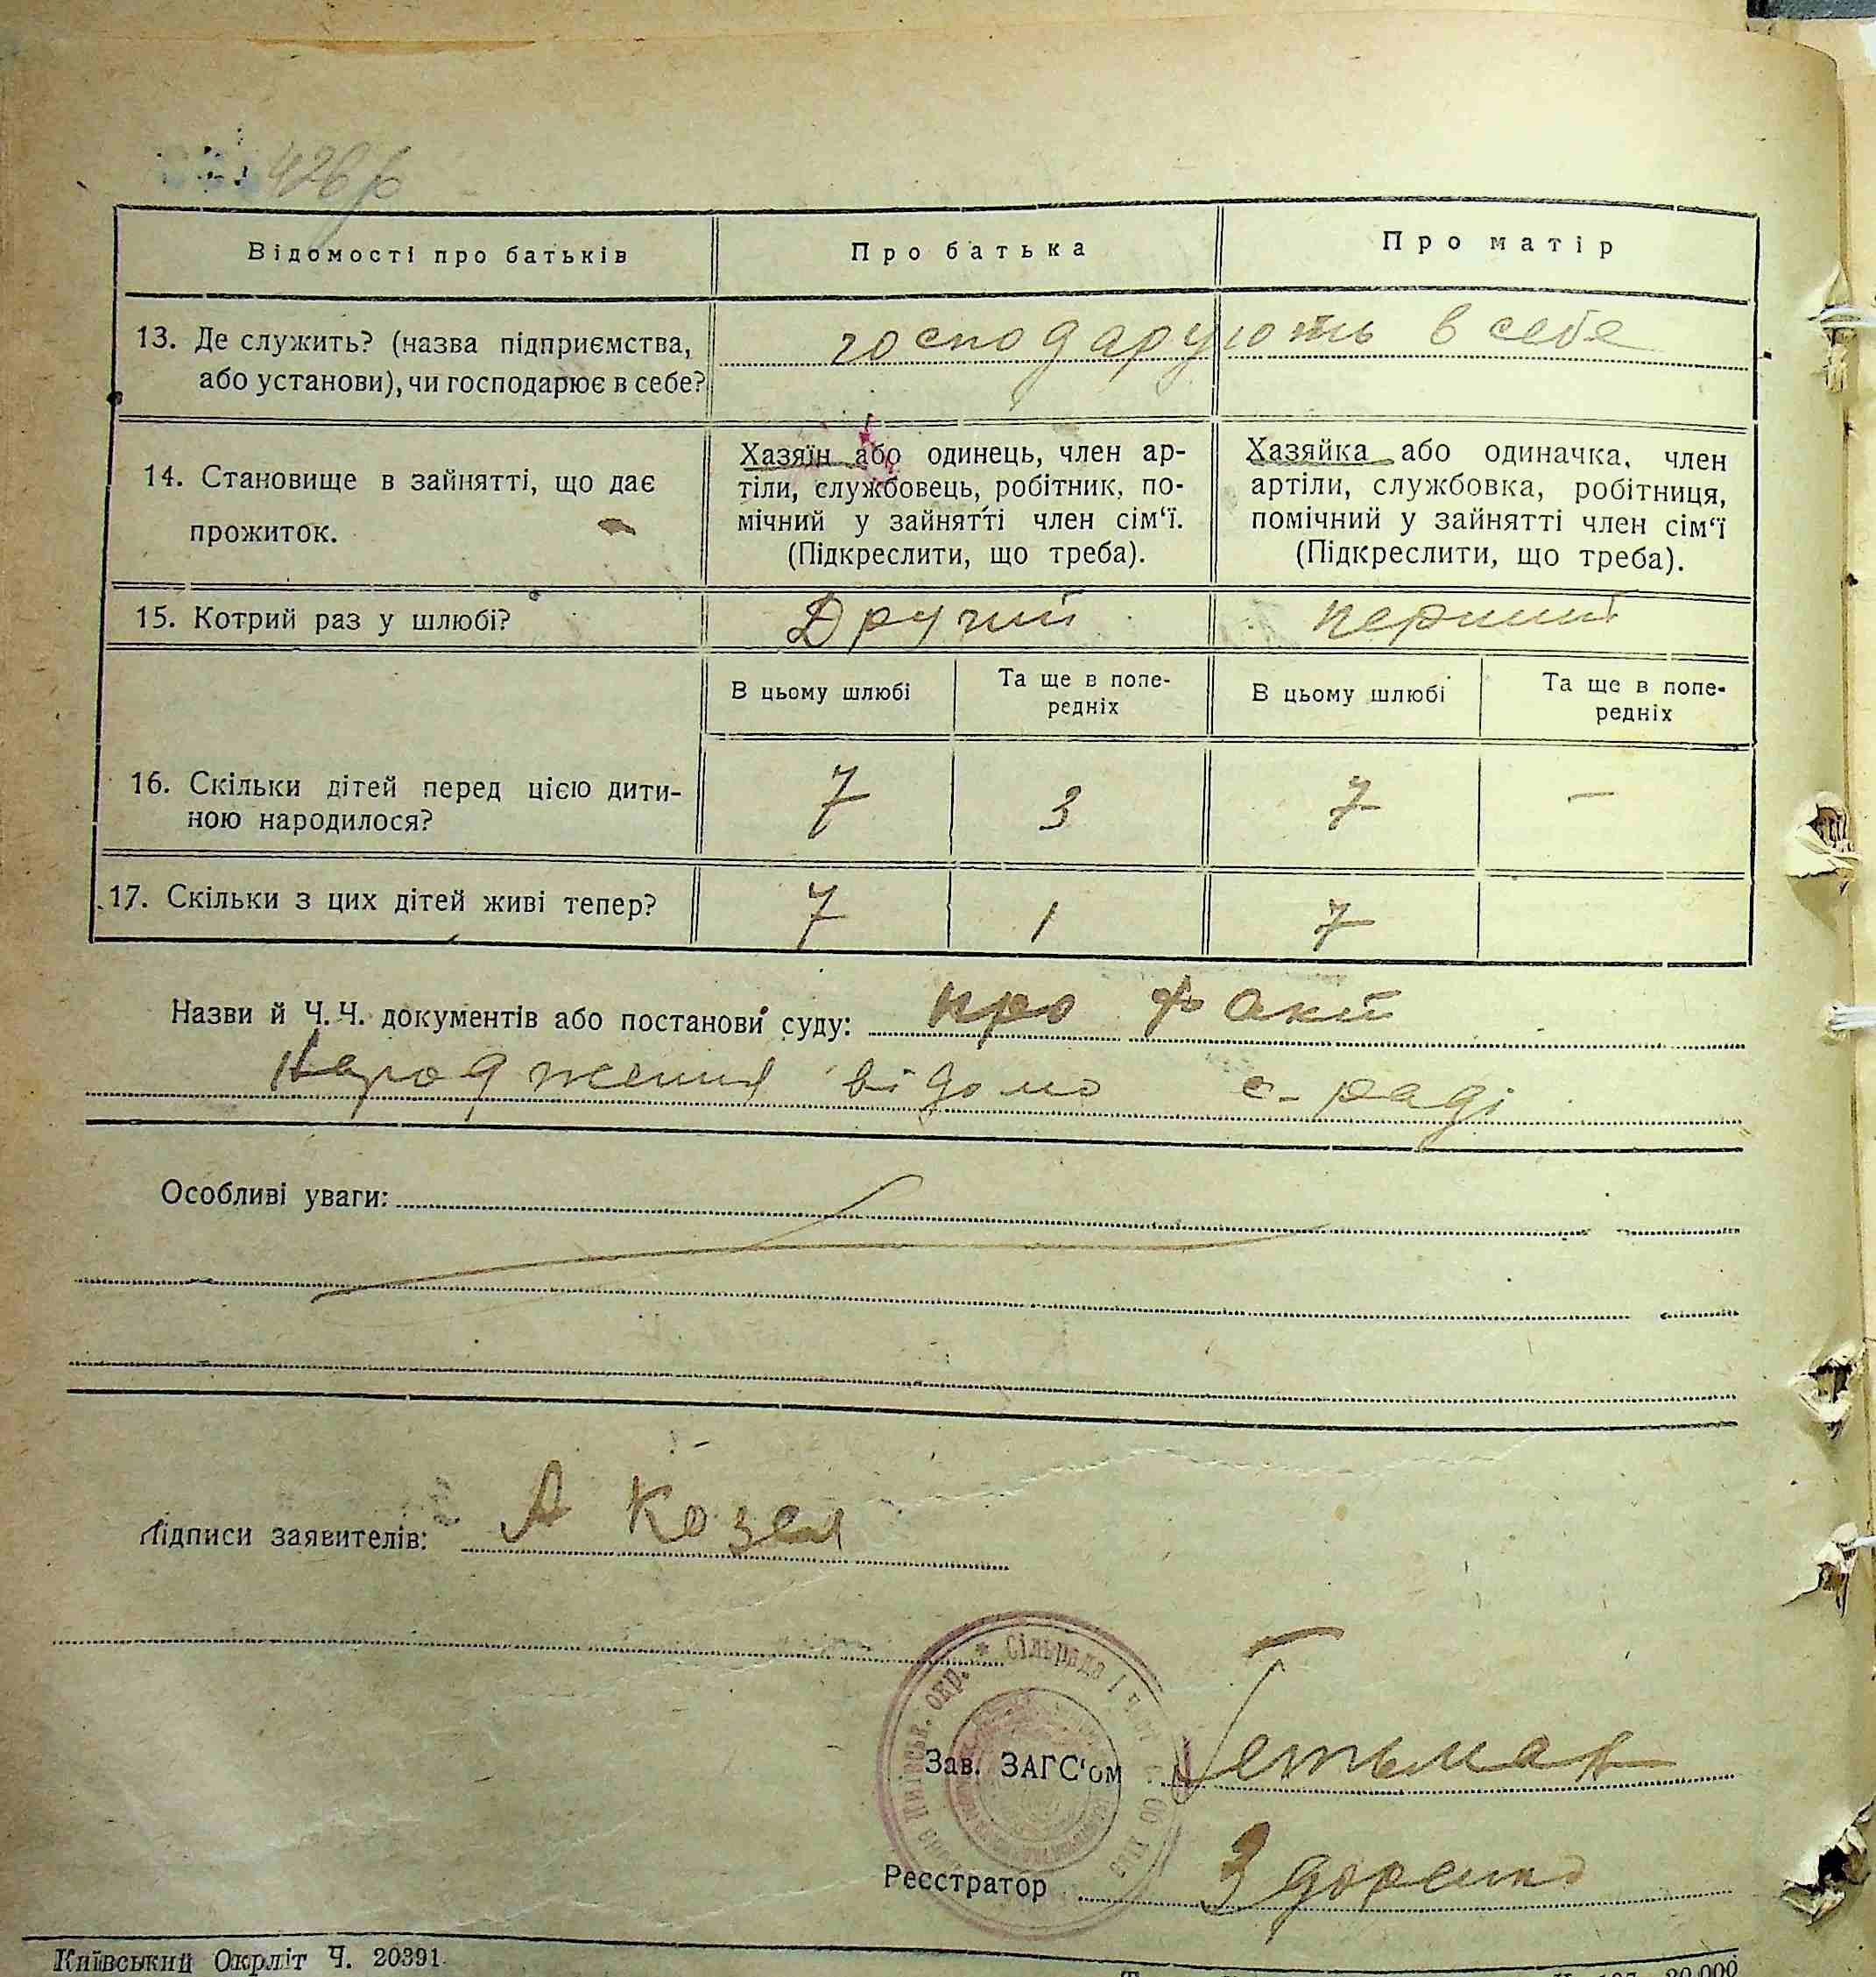 426
Відомості про батьків
Про батька
Про матір
13. Де служить? (назва підприємства,
або установи), чи господарює в себе?
господарують в себе
14. Становище в зайнятті, що дає
прожиток.
Хазяїн або одинець, член ар-
тіли, службовець, робітник, по-
мічний у зайнятті член сім‘ї.
(Підкреслити, що треба).
Хазяйка або одиначка, член
артіли, службовка, робітниця,
помічний у зайнятті член сім‘ї
(Підкреслити, що треба).
15. Котрий раз у шлюбі?
Другий
перший
В цьому шлюбі
Та ще в попе-
редніх
В цьому шлюбі
Та ще в попе-
редніх
16. Скільки дітей перед цією дити-
ною народилося?
7
3
7
—
17. Скільки з цих дітей живі тепер?
7
1
7
Назви й Ч. Ч. документів або постанови суду: про факт
народження відомо с-раді
Особливі уваги:
Підписи заявителів: А Козел
Сільрада
окр.
Зав. ЗАГС‘ом Гетьман
Реєстратор
Київський Окрліт Ч. 20391.
20.000